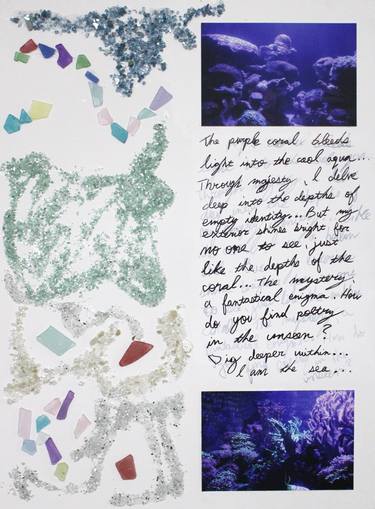 The purple coral bleeds
light into the cool aqua...
Through majesty, I delve
deep into the depths of
empty identity... But my
exterior shines bright for
no one to see, just
like the depths of the
coral... The mystery,
a fantastical enigma. How
do you find poetry
in the unseen?
Dig deeper within...
I am the sea...